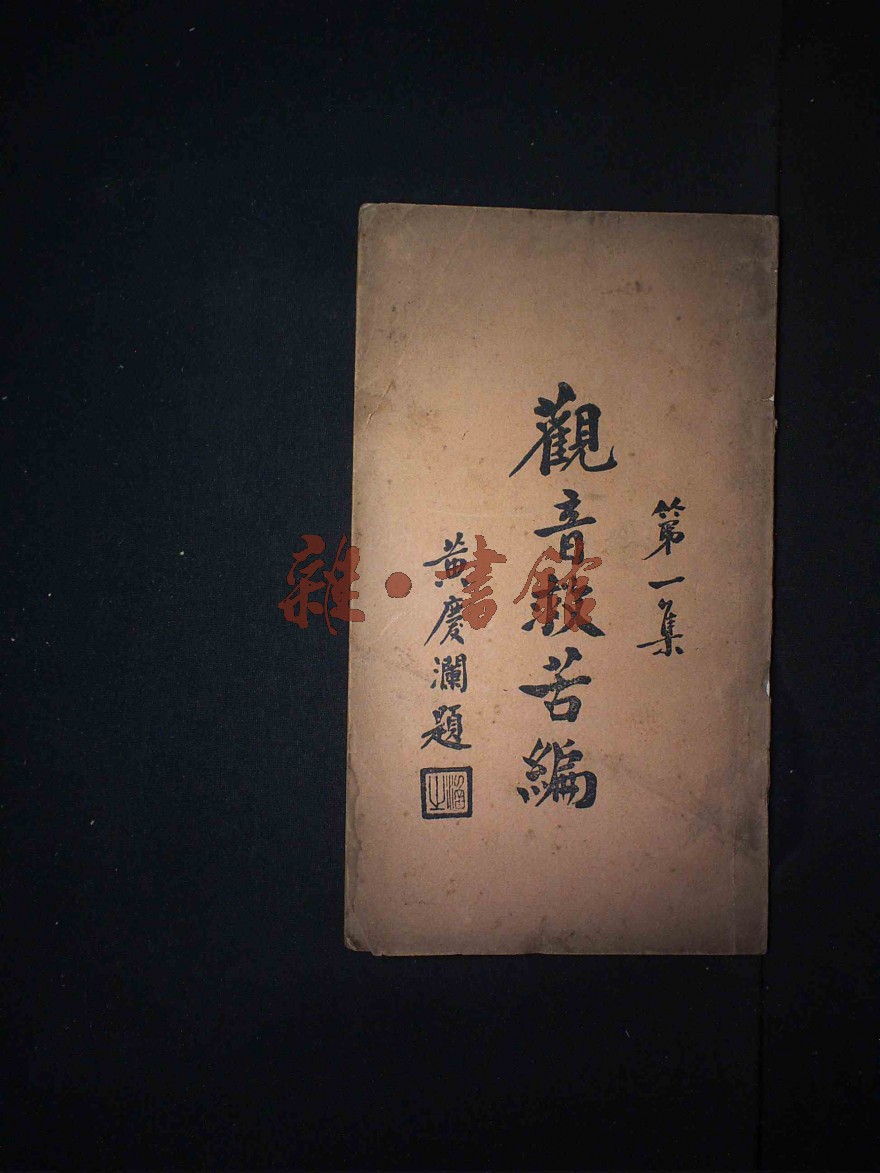 第一集
觀音救苦編
黃慶瀾題
涵之
雜·書館